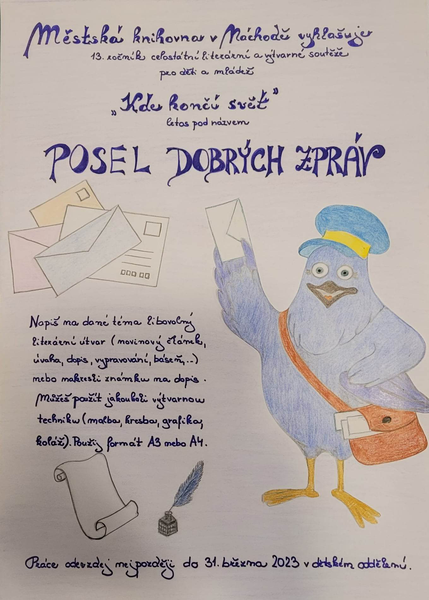 Městská knihovna v Náchodě vyhlašuje
13. ročník celostátní literární a výtvarné soutěže
pro děti a mládež
„Kde končí svět"
letos pod názvem
POSEL DOBRÝCH ZPRÁV
Napiš na dané téma libovolný
literární útvar (novinový článek,
úvaha, dopis, vypravování, báseň,..)
nebo nakresli známku na dopis.
Můžeš použít jakoukoli výtvarnou
techniku (malba, kresba, grafika,
koláž). Použij formát A3 nebo A4.
Práce odevzdej nejpozději do 31. března 2023 v dětském oddělení.